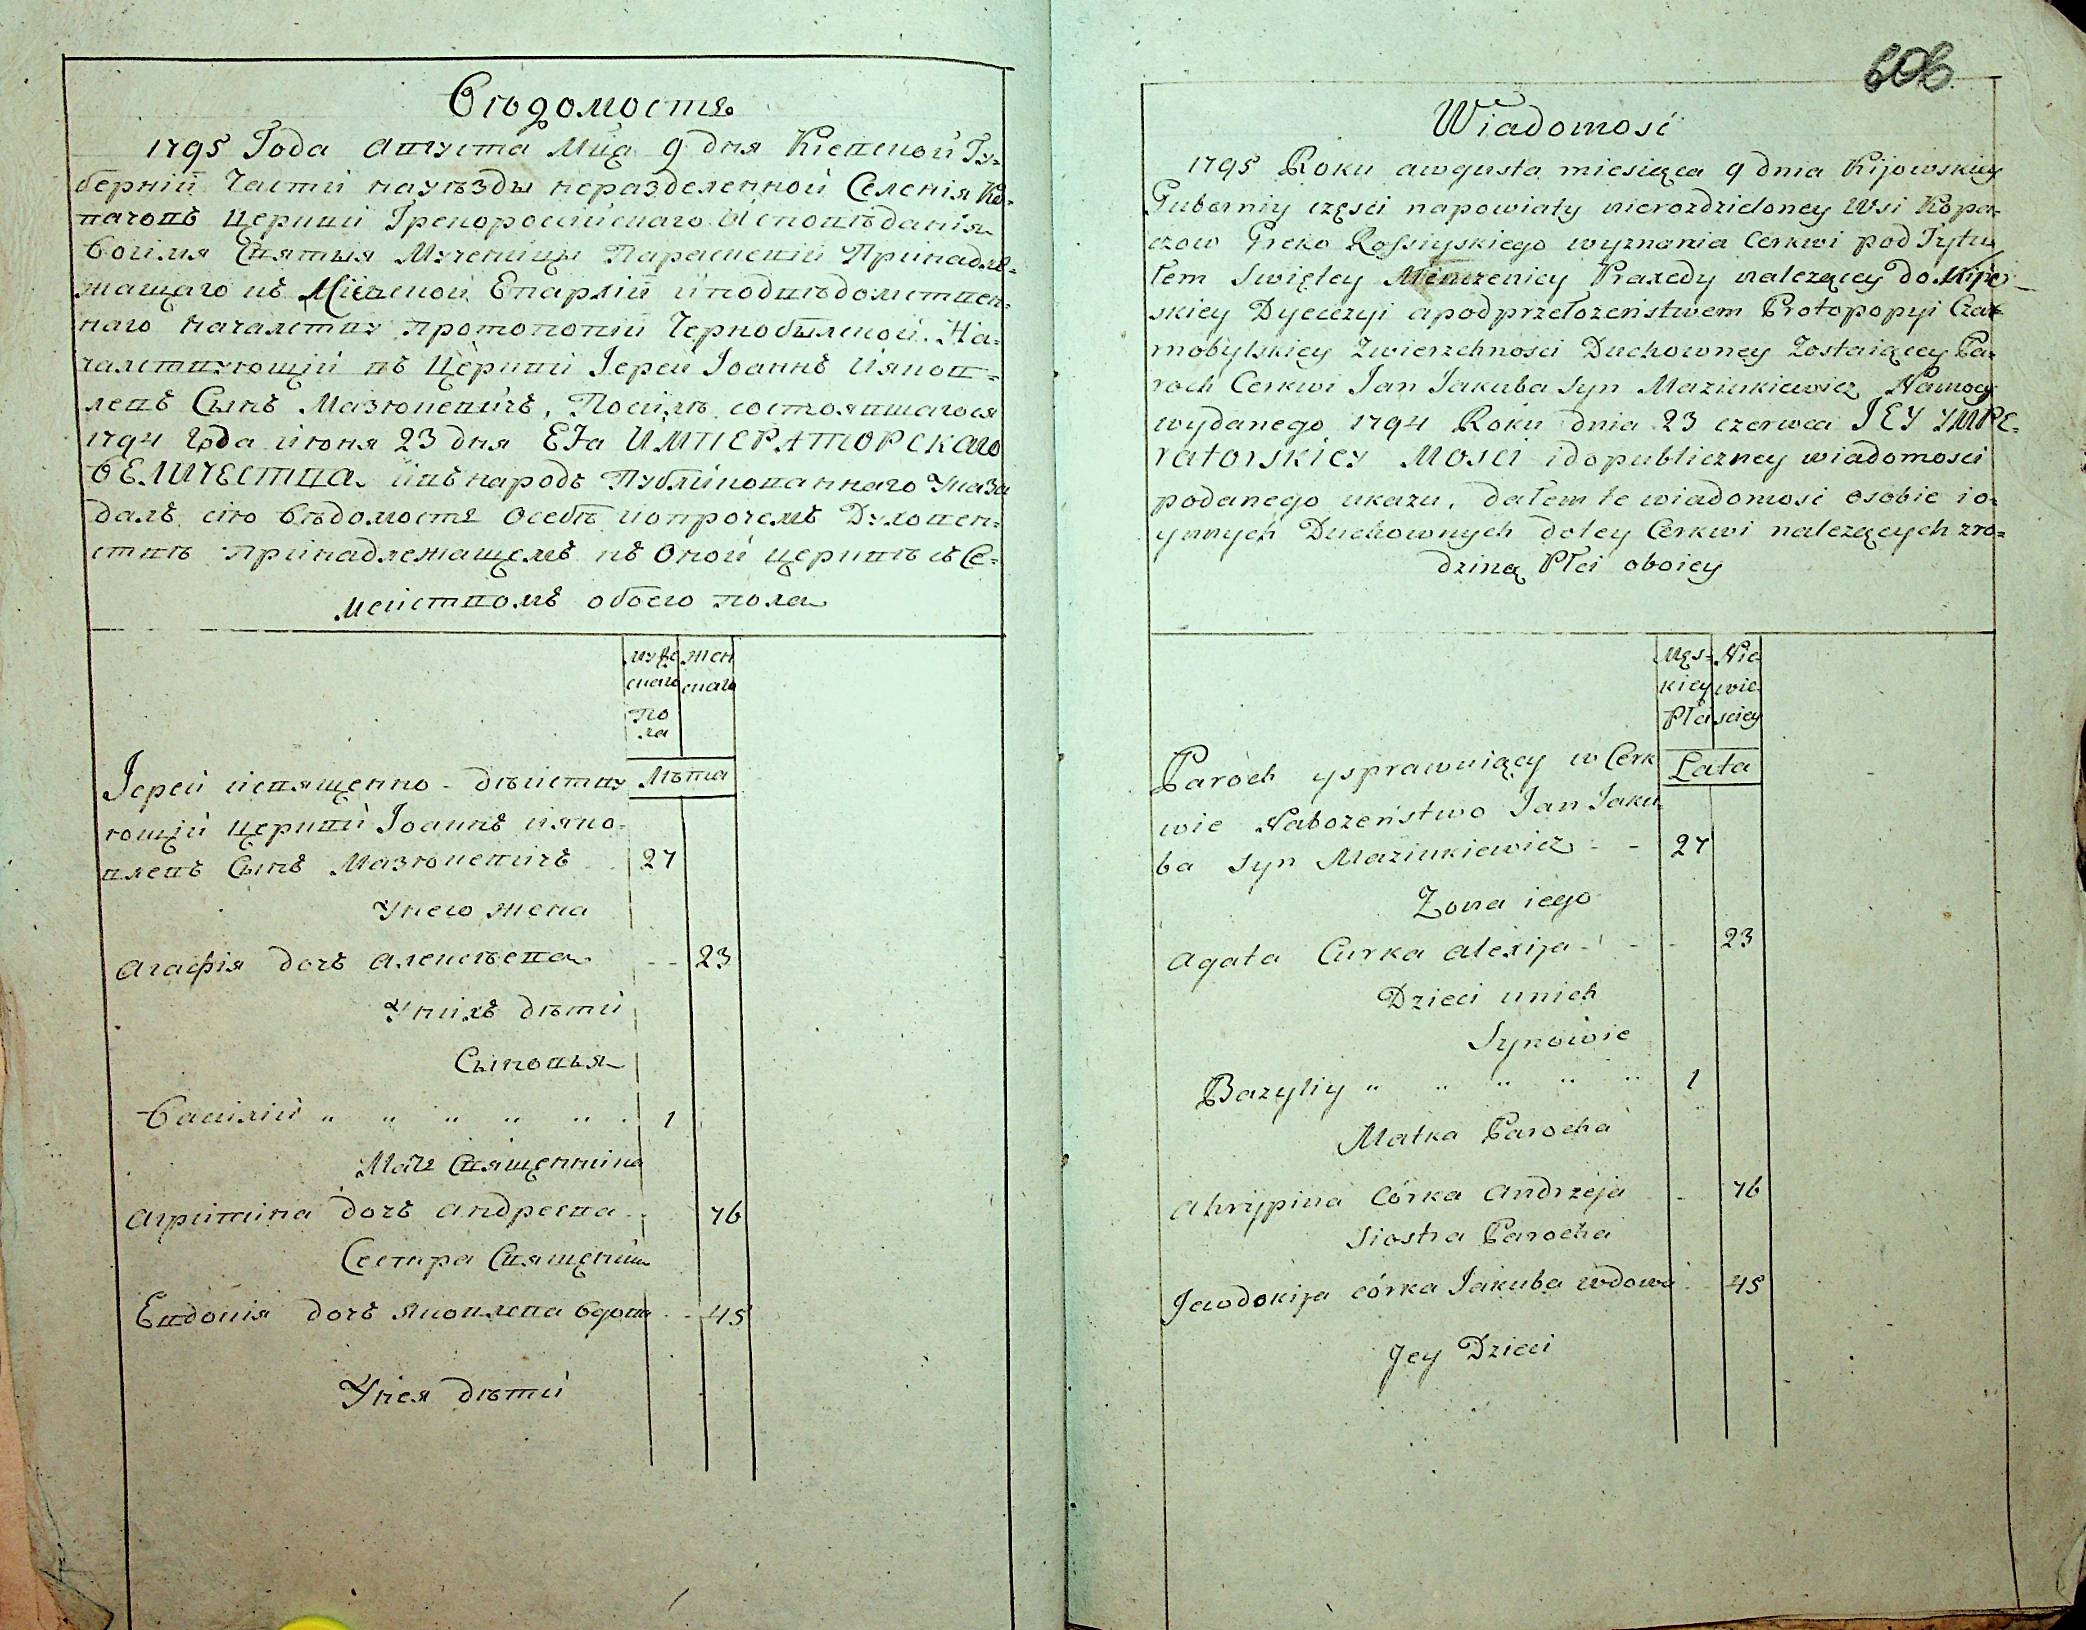 Вѣдомость
1795 Года Августа Мца 9 дня Кіевской Гу-
берніи Части науѣзды неразделенной Селенія Ко-
пачовъ Церкви Грекороссійскаго Исповѣданія
Воімя Святыя Мученицы Параскевіи Принадле-
жащаго къ Кіевской Епархіи иподвѣдомствен-
наго началству протопопіи Чернобылской. На-
чалствующій въ Церкви Іерей Іоаннъ Иаков-
левъ Сынъ Мазюкевичъ, Посилѣ состоявшагося
1794 Года июня 23 дня ЕЯ ИМПЕРАТОРСКАГО
ВЕЛИЧЕСТВА ивънародъ Публикованнаго Указа
далъ сію Вѣдомость Осебѣ иопрочемъ Духовен-
ствѣ принадлежащемъ къ Оной церквѣ съ Се-
мействомъ обоего пола
мужс жен
скаго скаго
по
ла
Лѣта
Іерей исвященно-дѣйству
ющій церкви Іоаннъ иако-
влевъ Сынъ Мазюкевичъ 27
Унего жена
Агафія дочъ Алексѣева - - 23
Унихъ дѣти
Сыновья
Василій " " " " " 1
Мать Священника
Агрипина дочъ Андреева 76
Сестра Священни
Евдокія дочъ Яковлева Вдова - 45
Унея дѣти
606.
Wiadomość
1795 Roku awgusta miesiąca 9 dnia Kijowskiey
Guberniy części napowiaty nierozdzieloney Wsi Kopa-
czow Greko Rossiyskiego wyznania Cerkwi pod Tytu
łem Swiętey Męnczenicy Praxedy należącey do Kijo-
wskiey Dyecezyi apodprzełożeństwem Protopopyi Czar
mobylskiey Zwierzchności Duchowney Zostaiącey Pa-
roch Cerkwi Jan Jakuba Syn Maziukiewicz, Namocy
wydanego 1794 Roku dnia 23 czerwca JEY YMPE-
ratorskiey Mości idopubliczney wiadomości
podanego ukazu, dałem te wiadomość osobie io-
ynnych Duchownych dotey Cerkwi należących zro-
dziną Płci oboiey
Męs- Nie
kiey wie
Płci sciey
Lata
Paroch ysprawuiący w Cerk
wie Nabożeństwo Jan Jaku
ba Syn Maziukiewicz - - 27
Zona iego
Agata Curka Alexija - - - 23
Dzieci unich
Synowie
Bazyliy " " " " " 1
Matka Parocha
Ahrypina Córka Andrzeja - 76
Siostra Parocha
Jewdokija córka Jakuba wdowa 45
Jey Dzieci